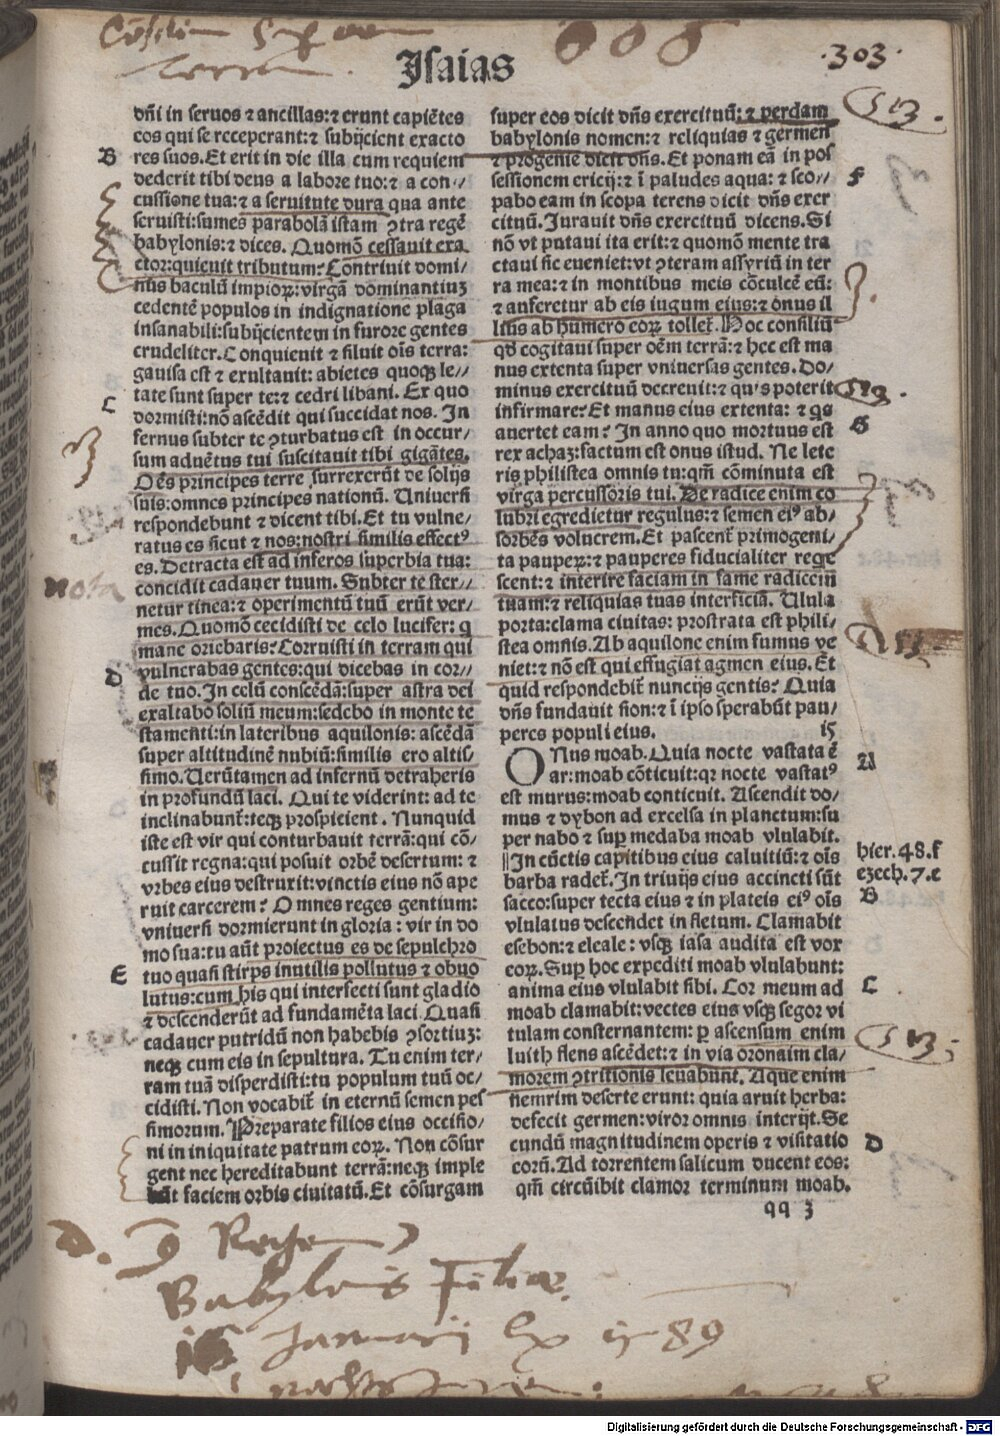 terram.
Isaias
.303.
dñi in seruos ⁊ ancillas:⁊ erunt capiētes
eos qui se receperant:⁊ subijcient exacto
B
res suos.Et erit in die illa cum requiem
dederit tibi deus a labore tuo:⁊ a con//
cussione tua:⁊ a seruitute dura qua ante
seruisti:sumes parabolā istam ꝯtra regē
babylonis:⁊ dices. Quomō cessauit exa
ctor:quieuit tributum? Contriuit domi/
nus baculū impioꝝ:virgā dominantiuꝫ
cedentē populos in indignatione plaga
insanabili:subijcientem in furore gentes
crudeliter.Conquieuit ⁊ siluit oīs terra:
gauisa est ⁊ exultauit: abietes quoqꝫ le//
tate sunt super te:⁊ cedri libani. Ex quo
C
dormisti:nō ascēdit qui succidat nos. In
fernus subter te ꝯturbatus est in occur/
sum aduētus tui suscitauit tibi gigātes.
Oēs principes terre surrexerūt de solijs
suis:omnes principes nationū. Uniuersi
respondebunt ⁊ dicent tibi.Et tu vulne/
ratus es sicut ⁊ nos:nostri similis effectꝰ
es.Detracta est ad inferos superbia tua:
nota
concidit cadauer tuum. Subter te ster//
netur tinea:⁊ operimentū tuū erūt ver/
mes.Quomō cecidisti de celo lucifer: q
mane oriebaris? Corruisti in terram qui
D
vulnerabas gentes:qui dicebas in cor//
de tuo.In celū conscēdā:super astra dei
exaltabo soliū meum:sedebo in monte te
stamenti:in lateribus aquilonis: ascēdā
super altitudinē nubiū:similis ero altis/
simo.Uerūtamen ad infernū detraheris
in profundū laci. Qui te viderint: ad te
inclinabunt̄:teqꝫ prospicient. Nunquid
iste est vir qui conturbauit terrā:qui cō/
cussit regna:qui posuit orbē desertum: ⁊
vrbes eius destruxit:vinctis eius nō ape
ruit carcerem? Omnes reges gentium:
vniuersi dormierunt in gloria : vir in do
mo sua:tu aūt proiectus es de sepulchro
E
tuo quasi stirps inutilis pollutus ⁊ obuo
lutus:cum his qui interfecti sunt gladio
⁊ descenderūt ad fundamēta laci. Quasi
cadauer putridū non habebis ꝯsortiuꝫ:
neqꝫ cum eis in sepultura. Tu enim ter/
ram tuā disperdisti:tu populum tuū oc/
cidisti. Non vocabit̄ in eternū semen pes
simorum. Preparate filios eius occisio/
ni in iniquitate patrum eoꝝ. Non cōsur
gent nec hereditabunt terrā:neqꝫ imple
būt faciem orbis ciuitatū.Et cōsurgam
super eos dicit dñs exercituū:⁊ perdam
babylonis nomen:⁊ reliquias ⁊ germen
⁊ progeniē dicit dñs. Et ponam eā in pos
F
sessionem ericij:⁊ ī paludes aqua: ⁊ sco//
pabo eam in scopa terens dicit dñs exer
cituū. Jurauit dñs exercituū dicens. Si
nō vt putaui ita erit:⁊ quomō mente tra
ctaui sic eueniet:vt ꝯteram assyriū in ter
ra mea:⁊ in montibus meis cōculcē eū:
⁊ auferetur ab eis iugum eius:⁊ onus il
lius ab humero eoꝝ tollet̄. Hoc consiliū
qđ cogitaui super oēm terrā:⁊ hec est ma
nus extenta super vniuersas gentes. Do/
minus exercituū decreuit:⁊ quis poterit
infirmare? Et manus eius extenta: ⁊ qs
G
auertet eam? In anno quo mortuus est
rex achaz:factum est onus istud. Ne lete
ris philistea omnis tu:qm̄ cōminuta est
virga percussoris tui. De radice enim co
lubri egredietur regulus:⁊ semen eiꝰ ab/
sorbēs volucrem. Et pascent̄ primogeni/
ta pauperꝝ:⁊ pauperes fiducialiter reqe
scent:⁊ interire faciam in fame radicem
tuam:⁊ reliquias tuas interficiā. Ulula
porta:clama ciuitas: prostrata est phili/
stea omnis. Ab aquilone enim fumus ve
niet:⁊ nō est qui effugiat agmen eius. Et
quid respondebit̄ nuncijs gentis? Quia
dñs fundauit sion:⁊ ī ipso sperabūt pau/
peres populi eius. 15
A
ONus moab. Quia nocte vastata ē
ar:moab cōticuit:qr nocte vastatꝰ
est murus:moab conticuit. Ascendit do/
mus ⁊ dybon ad excelsa in planctum:su
per nabo ⁊ sup̱ medaba moab vlulabit.
hier.48.f
In cūctis capitibus eius caluitiū:⁊ oīs
ezech.7.e
barba radet̄. In triuijs eius accincti sūt
B
sacco:super tecta eius ⁊ in plateis eiꝰ oīs
vlulatus descendet in fletum. Clamabit
esebon:⁊ eleale : vsqꝫ iasa audita est vox
eoꝝ. Sup̱ hoc expediti moab vlulabunt:
C
anima eius vlulabit sibi. Cor meum ad
moab clamabit:vectes eius vsqꝫ segor vi
tulam consternantem: ꝑ ascensum enim
luith flens ascēdet:⁊ in via oronaim cla/
morem ꝯtritionis leuabunt. Aque enim
nemrim deserte erunt: quia aruit herba:
defecit germen:viror omnis interijt. Se
D
cundū magnitudinem operis ⁊ visitatio
eorū. Ad torrentem salicum ducent eos:
qm̄ circūibit clamor terminum moab.
qq 3
Regem
Babylonis Filiae.
Januarij 89
Digitalisierung gefördert durch die Deutsche Forschungsgemeinschaft - DFG